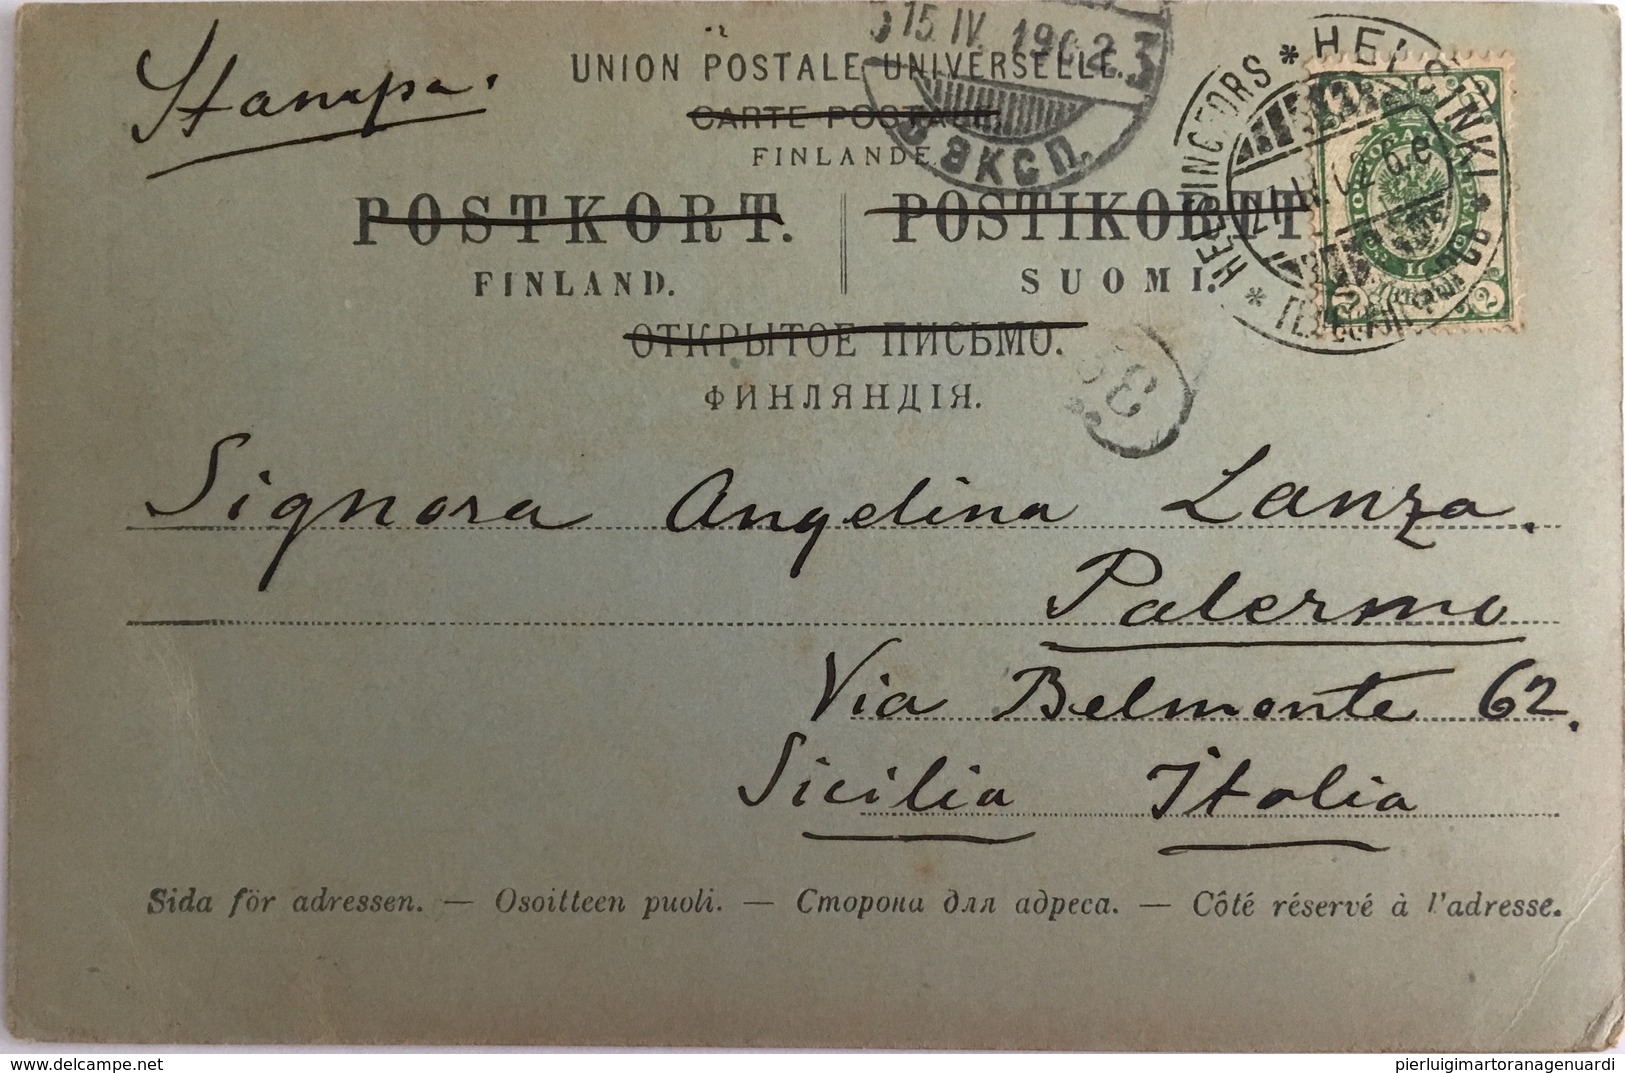 Stampa.
15 IV 1902
UNION POSTALE UNIVERSELLE.
CARTE POSTALE.
FINLANDE.
ЭКСП.
POSTKORT. POSTIKORTTI
FINLAND. SUOMI.
HELSINGFORS * HELSINKI *
ОТКРЫТОЕ ПИСЬМО.
ФИНЛЯНДІЯ.
Signora Angelina Lanza.
Palermo
Via Belmonte 62.
Sicilia Italia
Sida för adressen. — Osoitteen puoli. — Сторона для адреса. — Côté réservé à l'adresse.
delcampe.net
pierluigimartoranagenuardi